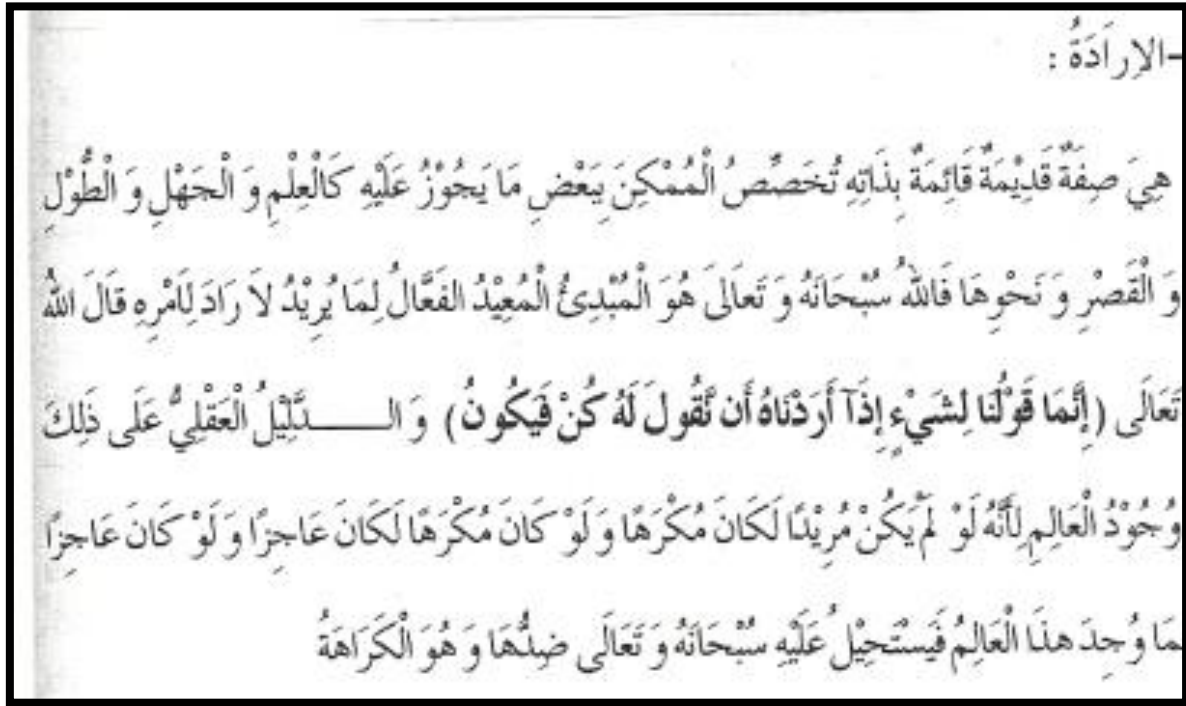 -الاِرَادَةُ :
هِيَ صِفَةٌ قَدِيْمَةٌ قَائِمَةٌ بِذَاتِهِ تُخَصِّصُ الْمُمْكِنَ بِبَعْضِ مَا يَجُوْزُ عَلَيْهِ كَالْعِلْمِ وَ الْجَهْلِ وَ الْطُّوْلِ
وَ الْقَصْرِ وَ نَحْوِهَا فَاللهُ سُبْحَانَهُ وَ تَعالَى هُوَ الْمُبْدِئُ الْمُعِيْدُ الفَعَّالُ لِمَا يُرِيْدُ لاَ رَادَ لِاَمْرِهِ قَالَ اللهُ
تَعَالَى (إِنَّمَا قَوْلُنَا لِشَيْءٍ إِذَآ أَرَدْنَاهُ أَن نَّقُولَ لَهُ كُنْ فَيَكُونُ) وَ الــــــدَّلِيْلُ الْعَقْلِيُّ عَلَى ذَلِكَ
وُجُوْدُ الْعَالِمِ لِأَنَّهُ لَوْ لَمْ يَكُنْ مُرِيْدًا لَكَانَ مُكْرَهًا وَ لَوْ كَانَ مُكْرَهًا لَكَانَ عَاجِزًا وَ لَوْ كَانَ عَاجِزًا
لمَا وُجِدَ هذَا الْعَالِمُ فَيَسْتَحِيْلُ عَلَيْهِ سُبْحَانَهُ وَ تَعَالَى ضِدُّهَا وَ هُوَ الْكَرَاهَةُ